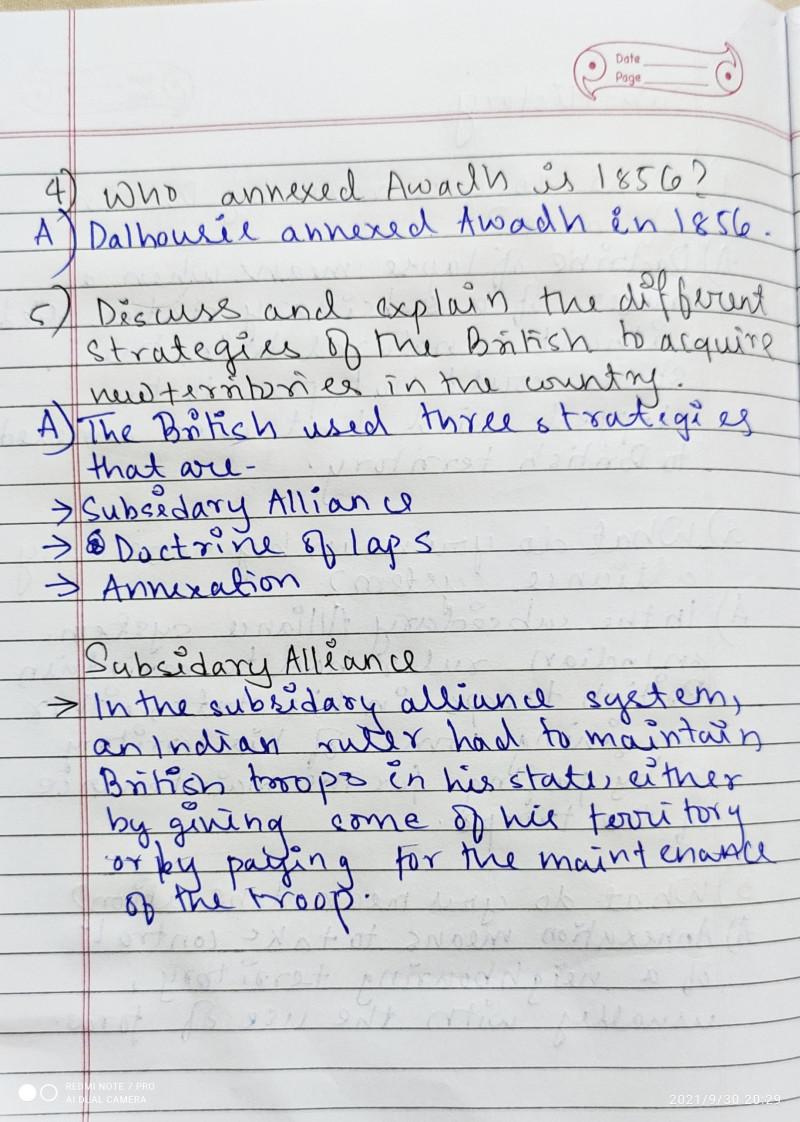 Date
Page
4) Who annexed Awadh is 1856?
A) Dalhousie annexed Awadh in 1856.
5) Discuss and explain the different
strategies of the British to acquire
new territories in the country.
A) The British used three strategies
that are-
→ Subsidary Alliance
→ Doctrine of laps
→ Annexation
Subsidary Alliance
→ In the subsidary alliance system,
an Indian ruler had to maintain
British troops in his state, either
by giving some of his territory
or by paying for the maintenance
of the troop.
REDMI NOTE 7 PRO
AI DUAL CAMERA
2021/9/30 20:29